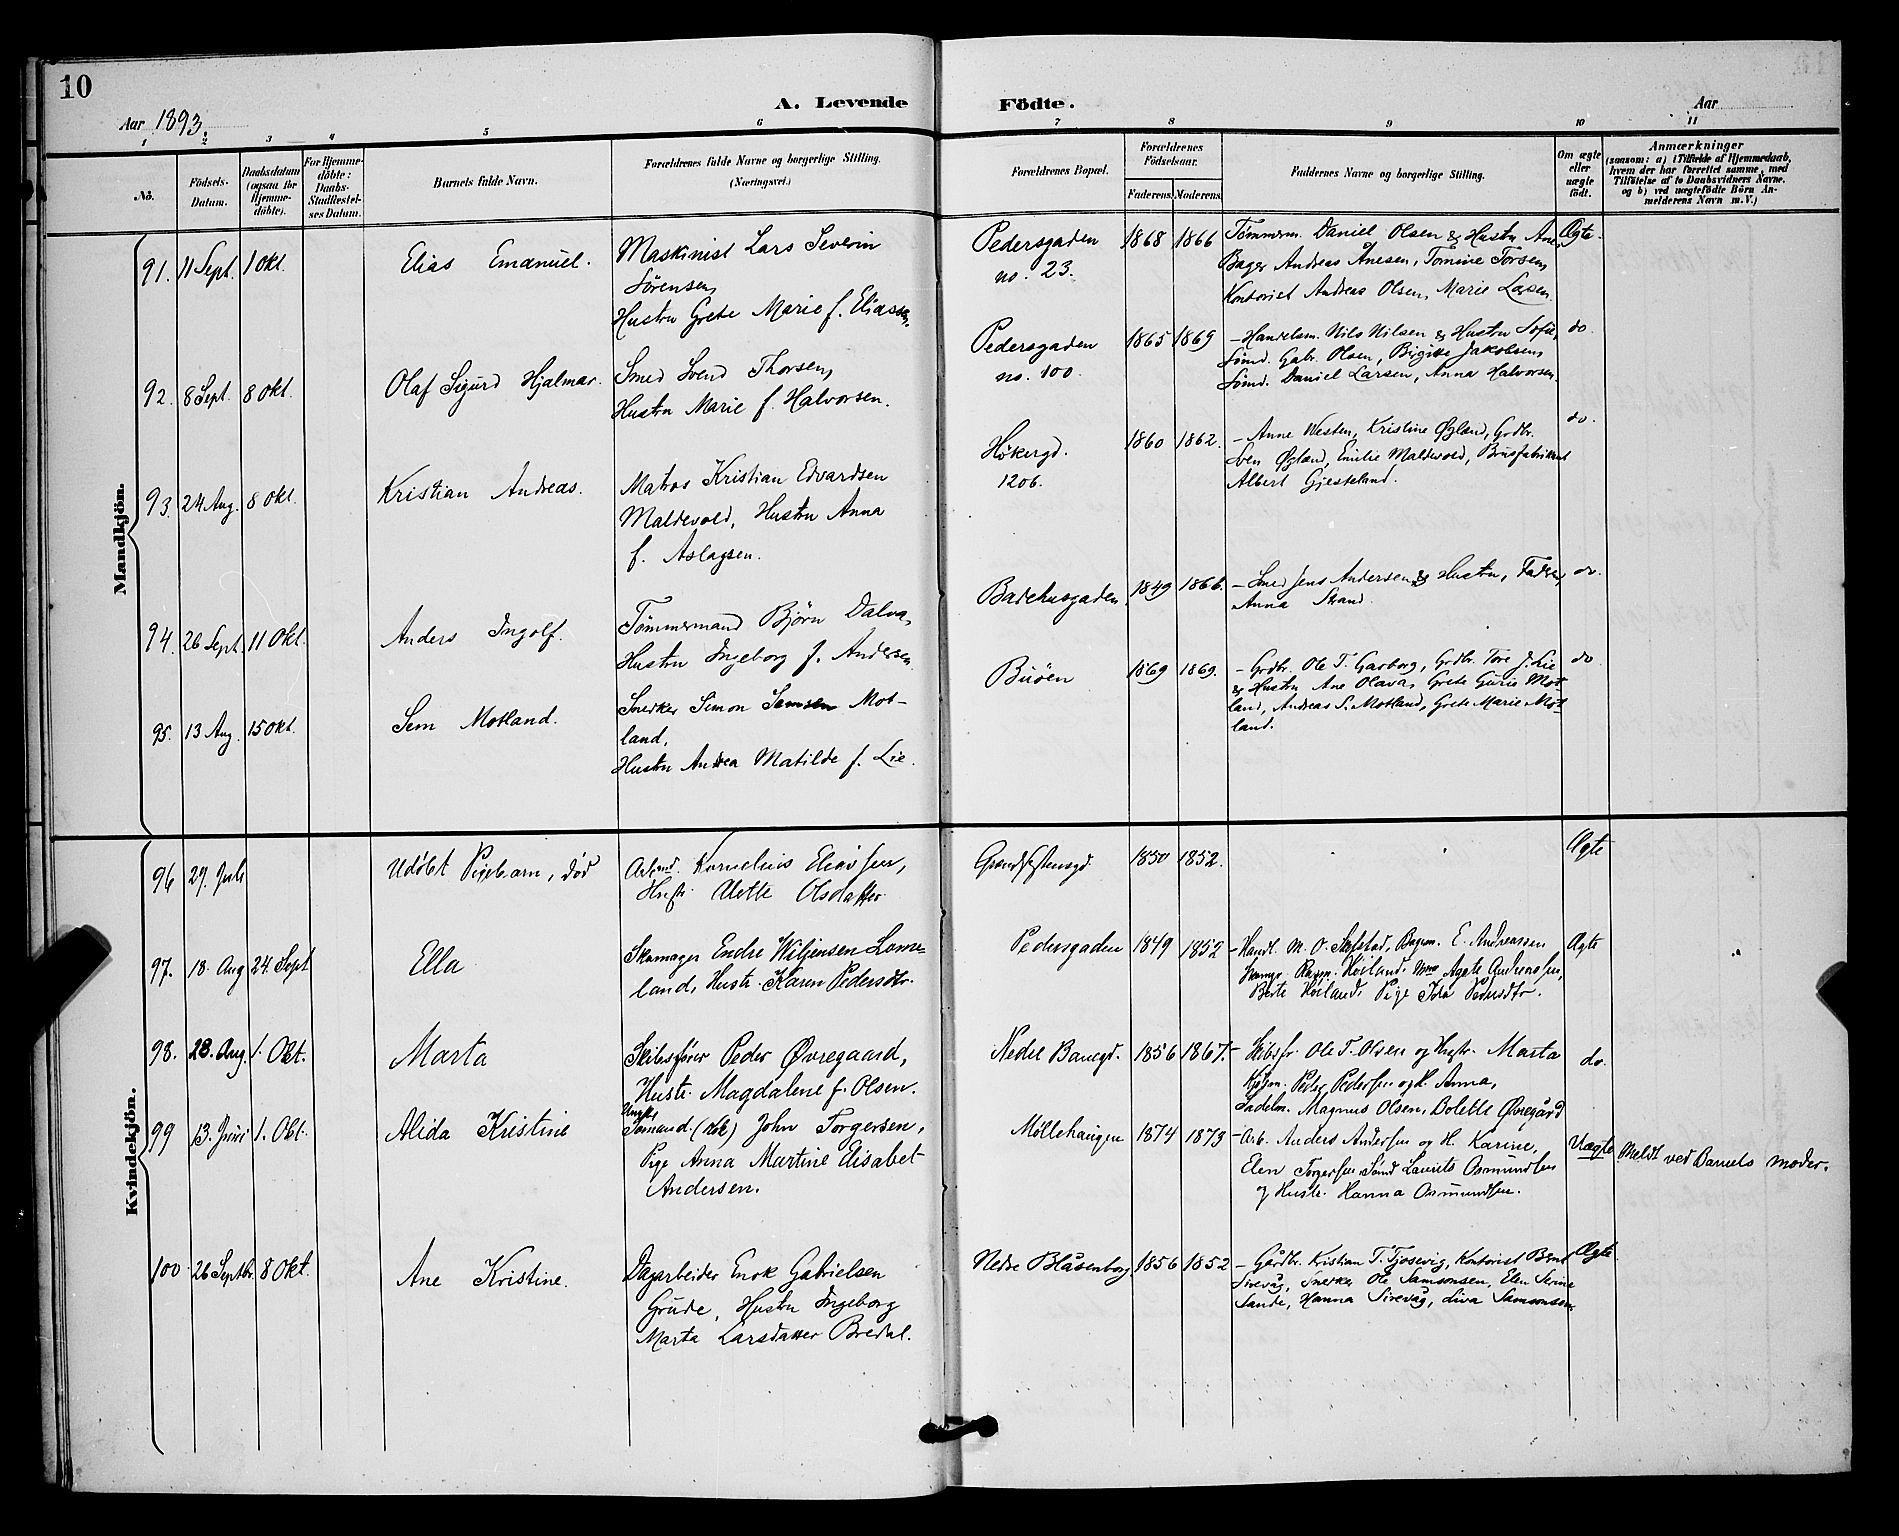 10
Aar 1893.
A. Levende Födte.
Aar
1 2 3 4 5 6 7 8 9 10 11
No.
Födsels-Datum.
Daabsdatum (ogsaa for Hjemme-döbte).
For Hjemme-döbte: Daabs-Stadfæstel-ses Datum.
Barnets fulde Navn.
Forældrenes fulde Navne og borgerlige Stilling. (Næringsvei.)
Forældrenes Bopæl.
Forældrenes Födselsaar.
Faderens. Moderens.
Faddernes Navne og borgerlige Stilling.
Om ægte eller uægte födt.
Anmærkninger
(saasom: a) i Tilfælde af Hjemmedaab,
hvem der har forrettet samme, med
Tilföielse af to Daabsvidners Navne,
og b) ved uægtefödte Börn An-
melderens Navn m. V.)
Mandkjön.
91. 11 Sept. 1 Okt. Elias Emanuel.
Maskinist Lars Severin
Sörensen,
Hustru Grete Marie f. Eliassen.
Pedersgaden
no. 23.
1868 1866
Tömmerm. Daniel Olsen & Hustru Ane,
Bager Andreas Anesen, Tomine Torsen,
Kontorist Andreas Olsen, Marie Larsen.
Ægte.
92. 8 Sept. 8 Okt. Olaf Sigurd Hjalmar.
Smed Svend Thorsen,
Hustru Marie f. Halvorsen.
Pedersgaden
no. 100.
1865 1869
– Handelsm. Nils Nilsen & Hustru Sofie,
Sömd. Gabr. Olsen, Birgitte Jakobsen,
Sömd. Daniel Larsen, Anna Halvorsen.
do.
93. 24 Aug. 8 Okt. Kristian Andreas.
Matros Kristian Edvardsen
Maldevold, Hustru Anna
f. Aslagsen.
Hökergd.
1206.
1860 1862.
– Anne Westen, Kristine Øglænd, Grdbr.
Sven Øglænd, Emilie Maldevold, Brusfabrikant
Albert Gjesteland.
do.
94. 26 Sept. 11 Okt. Anders Ingolf.
Tömmermand Björn Dalva,
Hustru Ingeborg f. Andersen.
Badehusgaden.
1849 1866.
– Smed Jens Andersen & Hustru, Fadren,
Anna Strand.
do.
95. 13 Aug. 15 Okt. Sem Motland.
Snerker Simon Samsen Mot-
land,
Hustru Andrea Matilde f. Lie.
Buöen
1869 1869.
– Grdbr. Ole T. Garborg, Grdbr. Tore J. Lie
& Hustru Ane Olava, Grete Gurie Mot-
land, Andreas S. Motland, Grete Marie Mot-
land.
do
Kvindekjön.
96 29. Juli Udöbt Pigebarn, död
Arbmd. Kornelius Eliassen,
Hustr. Olsdatter
1850 1852.
Ægte
97. 18. Aug 24. Sept Ella
Skomager Endre Wiljensen Lome-
land, Hustr. Karen Pedersdtr.
Pedersgaden
1849 1852
– Handl. M. O. Bagm. E. Andreassen
Høiland, Agate Andreassen,
Berte Høiland, Pige Ida Pedersdtr.
Ægte
98. 28. Aug. 1. Okt. Marta
Skibsförer Peder Øvregaard,
Hustr. Magdalene f. Olsen.
Nedre Banegd.
1856 1867.
– Skibsfr. Ole T. Olsen og Hustr. Marta
Kjøbm. Peder Pedersen og H. Anna,
Sadelm. Magnus Olsen, Bolette Øvregård
do.
99 13. Juni 1. Okt. Alida Kristine
Ungk.
Sömand. (Kok) John Torgersen,
Pige Anna Martine Elisabet
Andersen.
Möllehaugen
1874 1873
– Arb. Anders Andersen og H. Karine,
Elen Torgersen Sömd Laurits Osmundsen
og Hustr. Hanna Osmundsen.
Uægte
Meldt ved Barnets Moder.
100 26 Septbr. 8 Okt. Ane Kristine.
Dagarbeider Enok Gabrielsen
Grude, Hustru Ingeborg
Marta Larsdatter Bredal.
Nedre Blåsenborg.
1856 1852
– Gårdbr. Kristian T. Tjosevig, Kontorist Bernt
Sirevåg, Snerker Ole Samsonsen, Elen Serine
Sande, Hanna Sirevåg, Liva Samsonsen.
Ægte